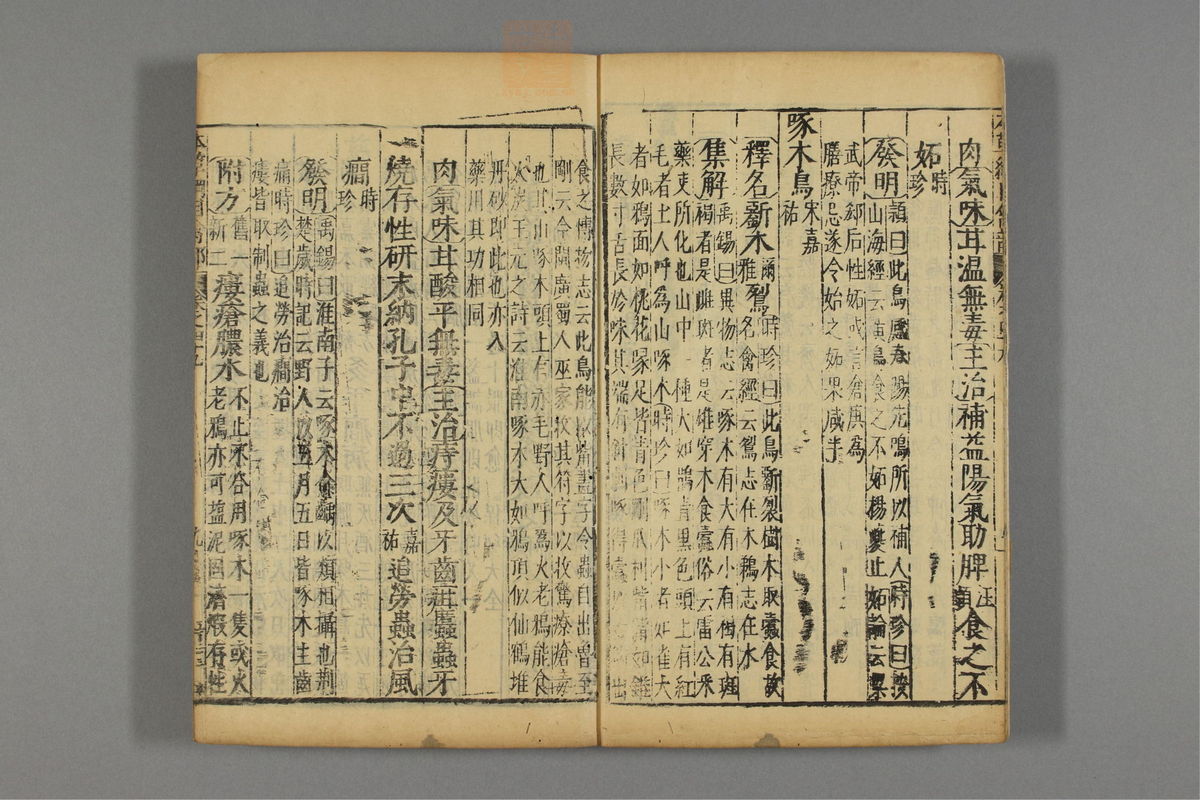 肉氣味甘溫無毒主治補益陽氣助脾汪穎食之不
妬時珍
發明穎曰此鳥感春陽先鳴所以補人時珍曰按
山海經云黃鳥食之不妬楊夔止妬論云梁
武帝郗后性妬或言倉庚為
膳療忌遂令茹之妬果減半
啄木鳥宋嘉祐
釋名斲木爾雅鴷時珍曰此鳥斲裂樹木取蠹食故
名禽經云鴷志在木鵜志在水
集解禹錫曰異物志云啄木有大有小有褐有斑
褐者是雌斑者是雄穿木食蠹俗云雷公采
藥吏所化也山中一種大如鵲青黑色頭上有紅
毛者土人呼為山啄木時珍曰啄木小者如雀大
者如鴉面如桃花喙足皆青色剛爪利觜觜如錐
長數寸舌長於咮其端有針刺啄得蠹以舌出
食之博物志云此鳥能以觜畫字令蟲自出魯至
剛云今閩廣蜀人巫家收其符字以收驚療瘡毒
也其山啄木頭上有赤毛野人呼為火老鴉能食
火炭王元之詩云淮南啄木大如鴉頂似仙鶴堆
丹砂即此也亦入
藥用其功相同
肉氣味甘酸平無毒主治痔瘻及牙齒疳䘌蟲牙
燒存性研末納孔子中不過三次嘉祐追勞蟲治風
癇時珍
發明禹錫曰淮南子云啄木愈齲以類相攝也荆
楚歲時記云野人以五月五日皆啄木主齒
痛時珍曰追勞治癇治
瘻皆取制蟲之義也
附方舊一新二瘻瘡膿水不止不合用啄木一隻或火
老鴉亦可鹽泥固濟煅存性